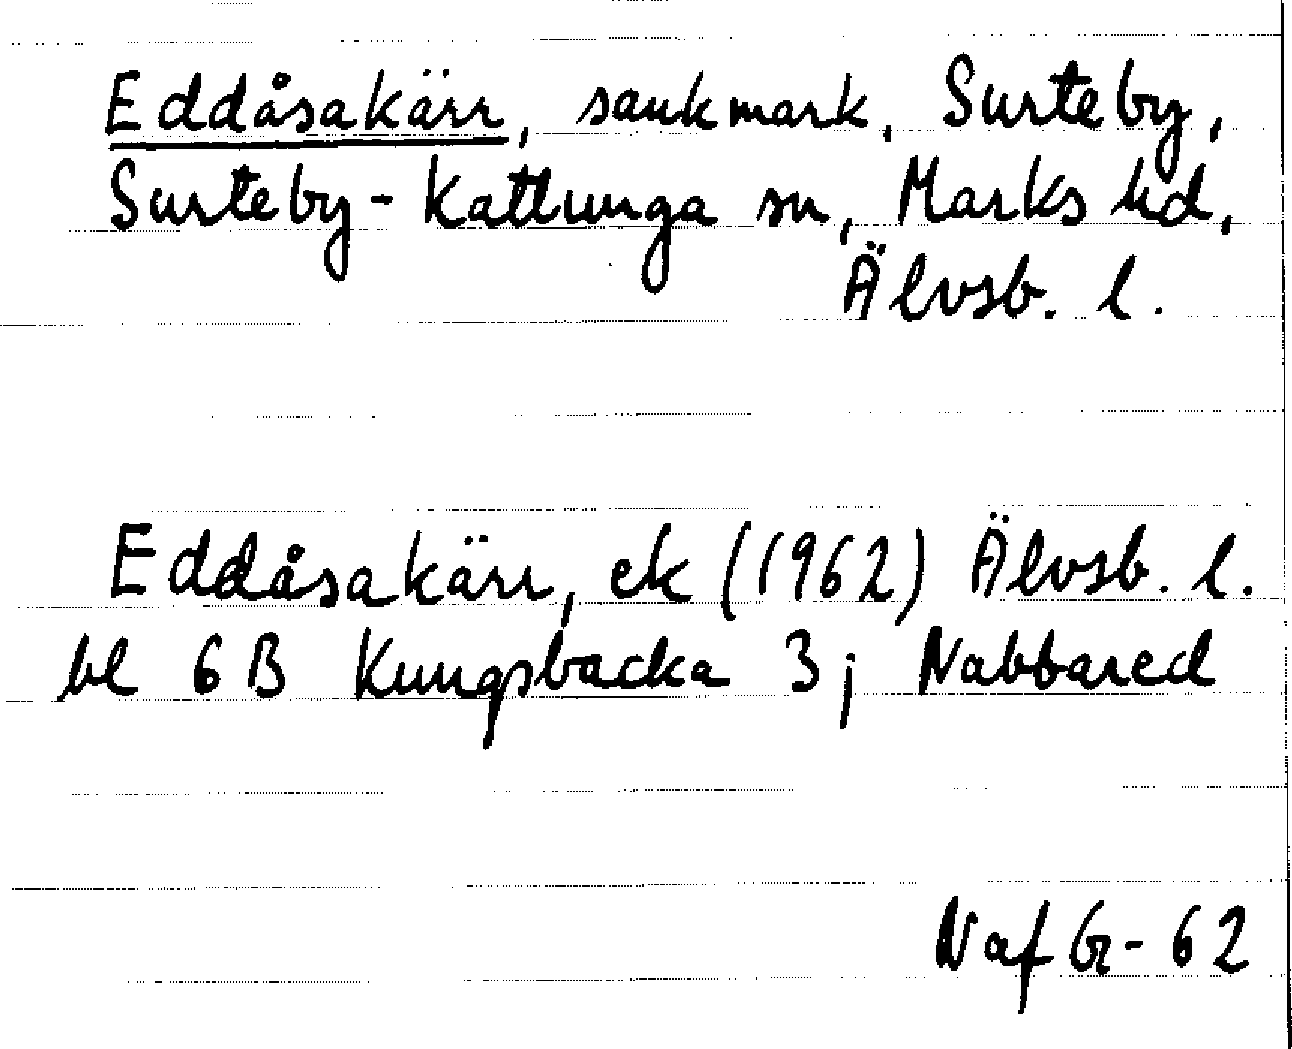 Eddåsakärr, sankmark, Surteby,
Surteby-Kattunga sn, Marks hd,
Älvsb. l.
Eddåsakärr, ek (1962) Älvsb. l.
bl 6B Kungsbacka 3j Nabbared
Naf G-62